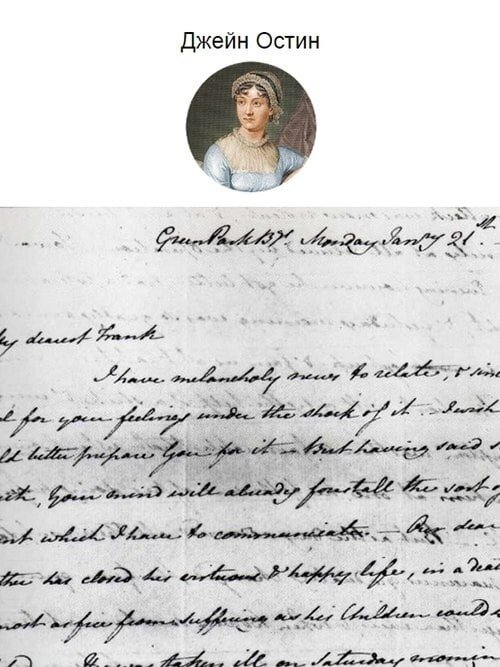 Джейн Остин
Green Park Bgs. Monday Janry 21.st
My dearest Frank
I have melancholy news to relate, & sin
l for your feelings under the shock of it. I wish
ld better prepare You for it. But having said s
Your mind will already forestall the sort of
nt which I have to communicate. Our dear
ther has closed his virtuous & happy life, in a dea
most as free from suffering as his Children could
He was taken ill on Saturday mornin